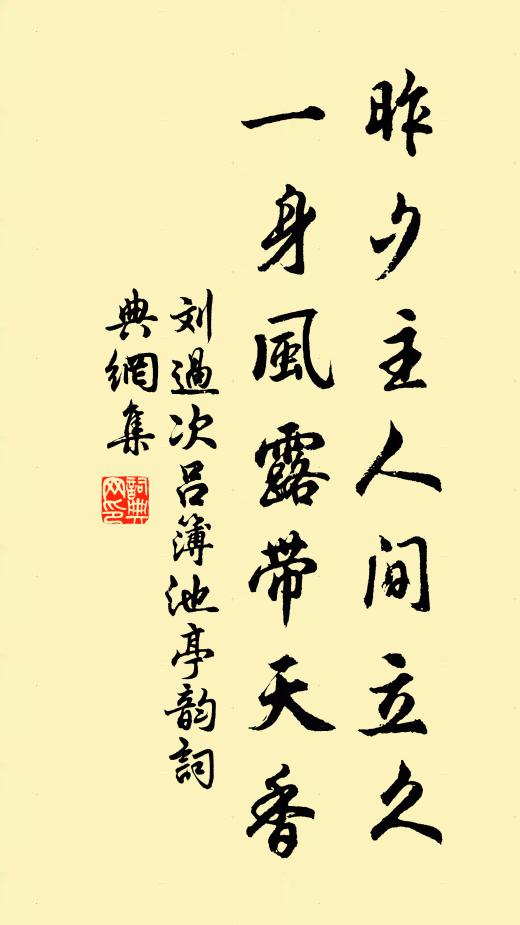 昨夕主人間立久
一身風露带天香
刘過次吕簿池亭韵詞
典網集
詞典网印